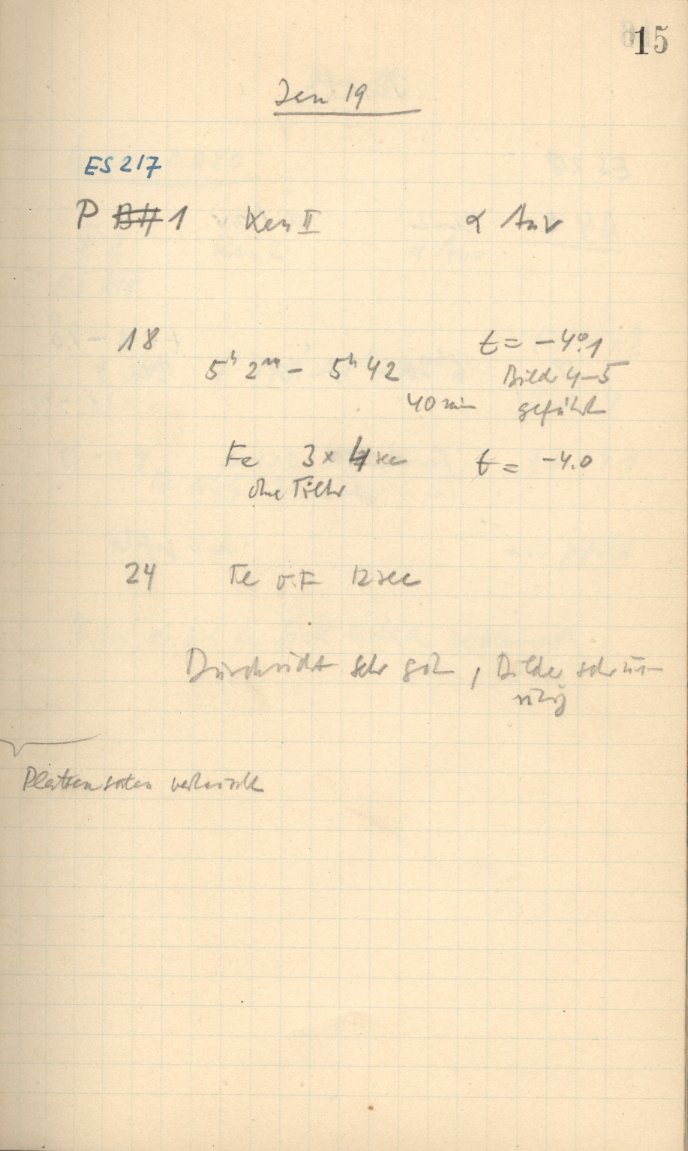 15
Jan 19
ES 217
P 1 Xen II α Aur
18 t = -4°.1
5h 2m - 5h 42 Bilder 4-5
40 min geführt
Fe 3 x 4 sec t = -4.0
ohne Filter
24 Fe o.F 12 sec
Durchsicht sehr gut, Bilder sehr un-
ruhig
Plattensorten vertauscht